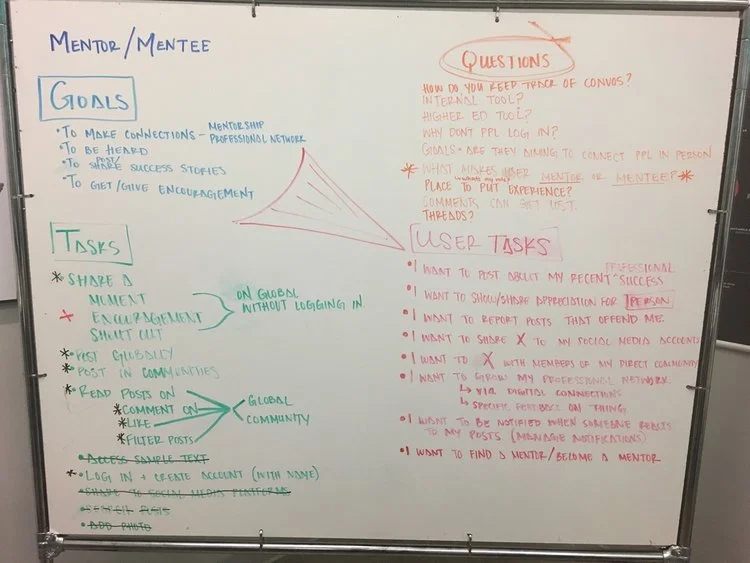 MENTOR/MENTEE
GOALS
• TO MAKE CONNECTIONS - MENTORSHIP
PROFESSIONAL NETWORK
• TO BE HEARD
• TO POST/SHARE SUCCESS STORIES
• TO GET/GIVE ENCOURAGEMENT
TASKS
* • SHARE A
MOMENT
* ENCOURAGEMENT
SHOUT OUT
ON GLOBAL
WITHOUT LOGGING IN
* • POST GLOBALLY
* • POST IN COMMUNITIES
* • READ POSTS ON
* COMMENT ON
* LIKE
* FILTER POSTS
GLOBAL
COMMUNITY
• ACCESS SAMPLE TEXT
* • LOG IN + CREATE ACCOUNT (WITH NAME)
• SHARE TO SOCIAL MEDIA PLATFORMS
• POSTS
• ADD PHOTO
QUESTIONS
HOW DO YOU KEEP TRACK OF CONVOS?
INTERNAL TOOL?
HIGHER ED TOOL?
WHY DON'T PPL LOG IN?
GOALS - ARE THEY AIMING TO CONNECT PPL IN PERSON
* WHAT MAKES USER MENTOR OR MENTEE? *
PLACE TO PUT EXPERIENCE?
COMMENTS CAN GET
THREADS?
USER TASKS
• I WANT TO POST ABOUT MY RECENT PROFESSIONAL SUCCESS
• I WANT TO SHOW/SHARE APPRECIATION FOR PERSON
• I WANT TO REPORT POSTS THAT OFFEND ME.
• I WANT TO SHARE X TO MY SOCIAL MEDIA ACCOUNTS
• I WANT TO X WITH MEMBERS OF MY DIRECT COMMUNITY
• I WANT TO GROW MY PROFESSIONAL NETWORK.
↳ VIA DIGITAL CONNECTIONS
↳ SPECIFIC FEEDBACK ON THING.
• I WANT TO BE NOTIFIED WHEN SOMEONE REACTS
TO MY POSTS (MANAGE NOTIFICATIONS)
• I WANT TO FIND A MENTOR/BECOME A MENTOR